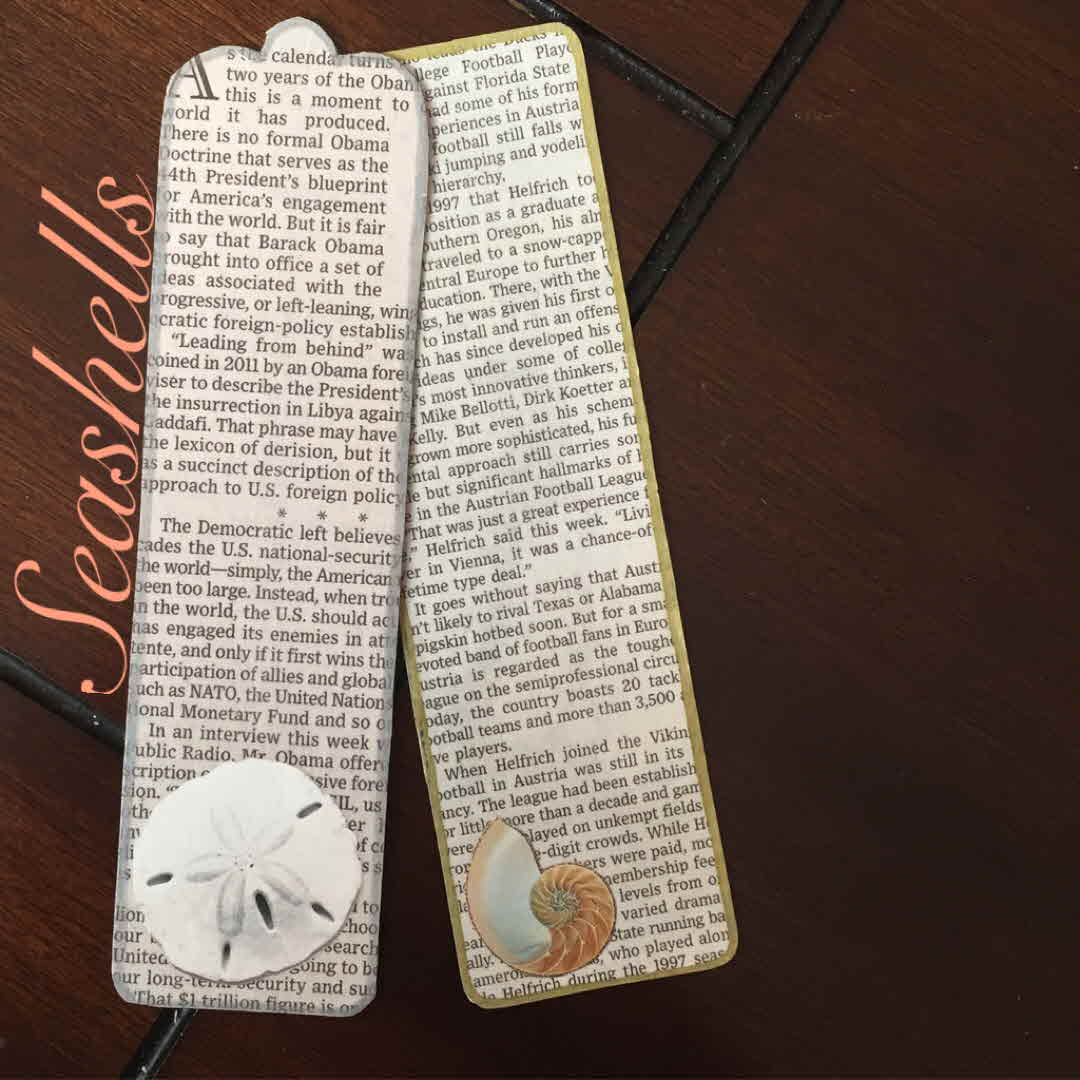 Seashells
A s the calendar turns
two years of the Obam
this is a moment to
world it has produced.
There is no formal Obama
Doctrine that serves as the
44th President's blueprint
for America's engagement
with the world. But it is fair
to say that Barack Obama
brought into office a set of
ideas associated with the
progressive, or left-leaning, wing
cratic foreign-policy establish
"Leading from behind" was
coined in 2011 by an Obama forei
viser to describe the President's
the insurrection in Libya again
addafi. That phrase may have
the lexicon of derision, but it
as a succinct description of the
approach to U.S. foreign policy
* * *
The Democratic left believes
ades the U.S. national-security
the world—simply, the American
been too large. Instead, when tro
in the world, the U.S. should ac
has engaged its enemies in att
tente, and only if it first wins the
articipation of allies and global
uch as NATO, the United Nation
ional Monetary Fund and so o
In an interview this week w
ublic Radio, Mr. Obama offer
cription sive fore
sion. IL, us
the er
of co
lion to
our choo
United search
going to be
our long-term security and su
That $1 trillion figure is or
leads the Ducks
llege Football Playo
against Florida State
had some of his form
periences in Austria
football still falls w
d jumping and yodeli
hierarchy.
1997 that Helfrich to
osition as a graduate a
outhern Oregon, his alm
traveled to a snow-capp
entral Europe to further h
ducation. There, with the V
gs, he was given his first o
to install and run an offens
ch has since developed his o
ideas under some of colle
's most innovative thinkers, i
Mike Bellotti, Dirk Koetter an
Kelly. But even as his schem
grown more sophisticated, his fu
ntal approach still carries sor
le but significant hallmarks of h
e in the Austrian Football League
"That was just a great experience f
," Helfrich said this week. "Livi
er in Vienna, it was a chance-of
fetime type deal."
It goes without saying that Austr
n't likely to rival Texas or Alabama
pigskin hotbed soon. But for a sma
evoted band of football fans in Euro
ustria is regarded as the toughe
ague on the semiprofessional circu
oday, the country boasts 20 tack
ootball teams and more than 3,500
ve players.
When Helfrich joined the Vikin
ootball in Austria was still in its
ancy. The league had been establish
or little more than a decade and gam
were played on unkempt fields
e-digit crowds. While H
ers were paid, mo
membership fee
levels from o
varied drama
State running ba
ally. who played alon
ameron
Helfrich during the 1997 seas